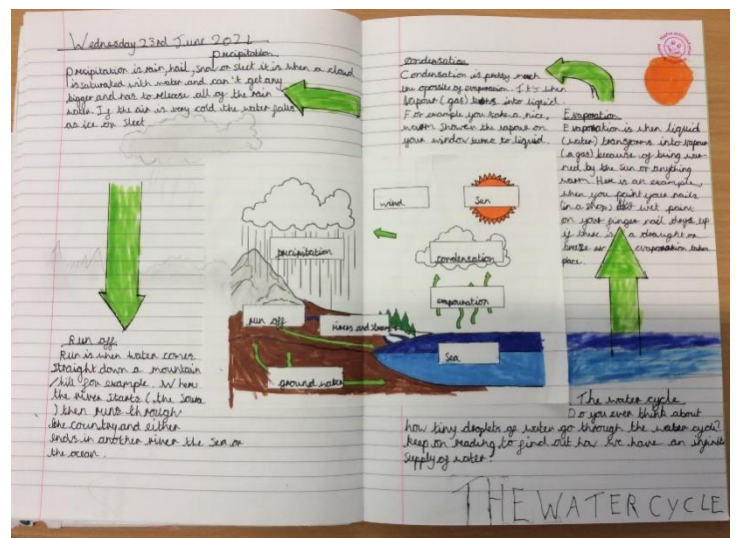 Wednesday 23rd June 2021
Precipitation
Precipitation is rain, hail, snow or sleet it is when a cloud
is saturated with water and can't get any
bigger and has to release all of the rain
water. If the air is very cold the water falls
as ice or sleet
Run off
Run is when water comes
straight down a mountain
/hill for example. Where
the river starts (the
) then runs through
the country and either
ends in another river the sea or
the ocean.
precipitation
run off
rivers and
ground water
wind
Sun
condensation
evaporation
Sea
Condensation
Condensation is pretty much
the opposite of evaporation. It's when
Vapour (gas) turns into liquid.
For example you take a nice,
warm shower the vapour on
your window turns to liquid.
Evaporation
Evaporation is when liquid
(water) transforms into vapour
(a gas) because of being
by the sun or anything
warm. Here is an example,
when you paint your nails
(in a shop) wet paint
on your finger nail drys up
if there is a draught or
breeze evaporation takes
place.
The water cycle
Do you ever think about
how tiny droplets of water go through the water cycle?
Keep on reading to find out how we have an
supply of water?
THE WATER CYCLE